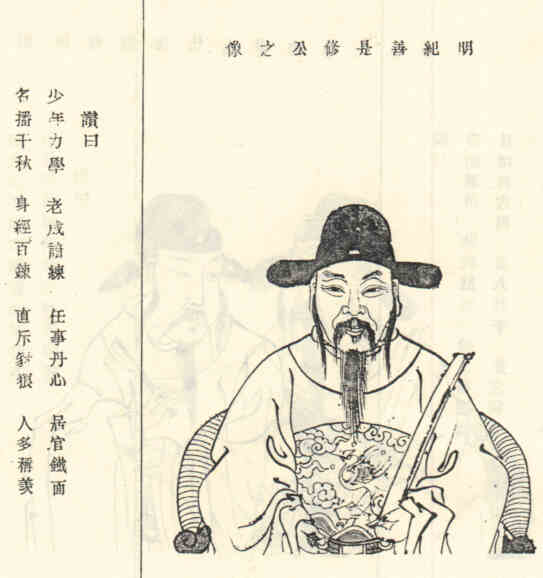 明紀善是修公之像
讚曰
少年力學 老成諳練 任事丹心 居官鐵面
名播千秋 身經百鍊 直斥豺狼 人多稱羡